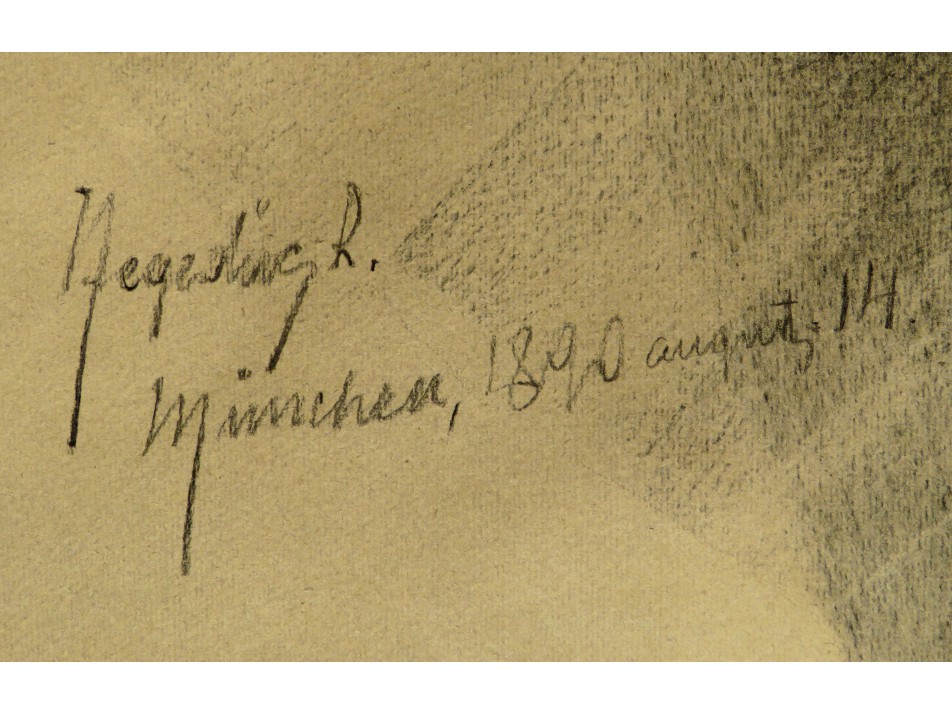 Hegedűs L.
München, 1890 august. 14.